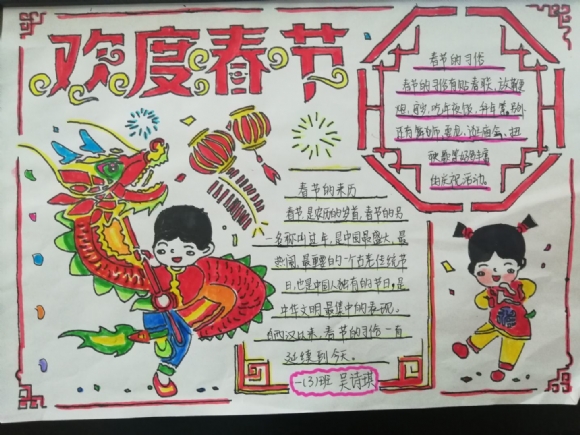 欢度春节
春节的习俗
春节的习俗有贴春联、放鞭
炮、守岁、吃年夜饭、拜年等,另外
还有舞狮、
的庆祝活动。
春节的来历
春节,是农历的岁首,春节的另
一名称叫过年,是中国最盛大、最
热闹、最重要的一个古老传统节
日,也是中国人独有的节日,是
中华文明最集中的表现。
自西汉以来,春节的习俗一直
延续到今天。
一(3)班 吴诗琪